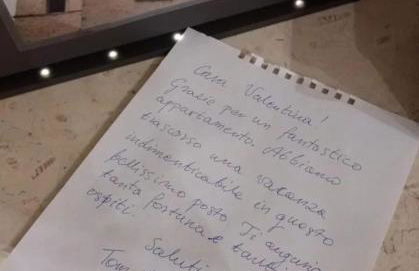 Cara Valentina!
Grazie per un fantastico
appartamento. Abbiamo
trascorso una vacanza
indimenticabile in questo
bellissimo posto. Ti auguriamo
tanta fortuna e tanti
ospiti.
Saluti
Tom